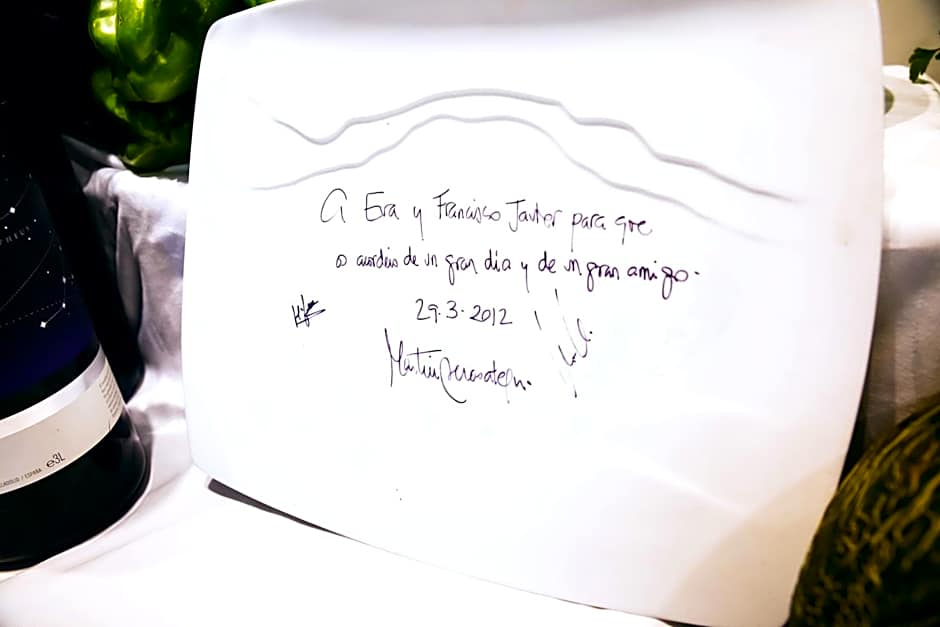 A Eva y Francisco Javier para que
os acordéis de un gran día y de un gran amigo.
29.3.2012
Martín Berasategui.
e3L
/ ESPAÑA